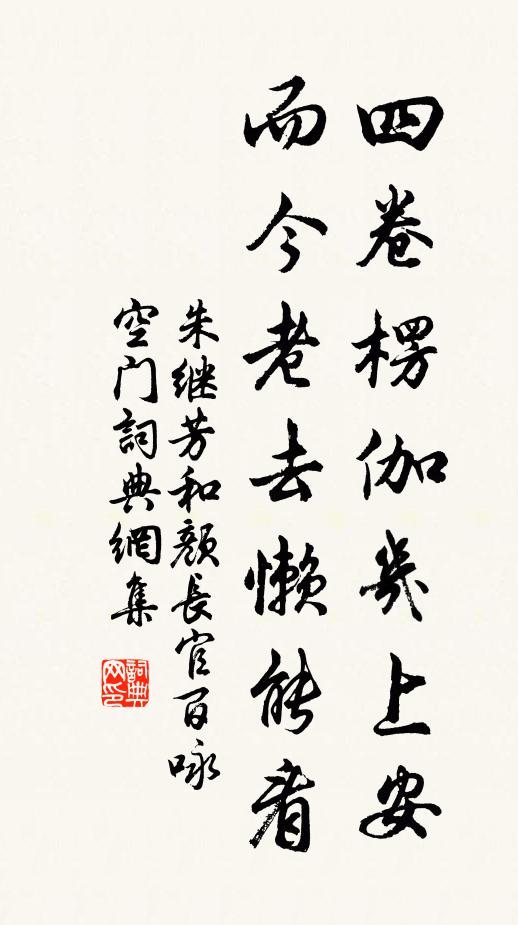 四卷楞伽几上安
而今老去懒能看
朱继芳和颜长官百咏
空门词典網集
詞典网印